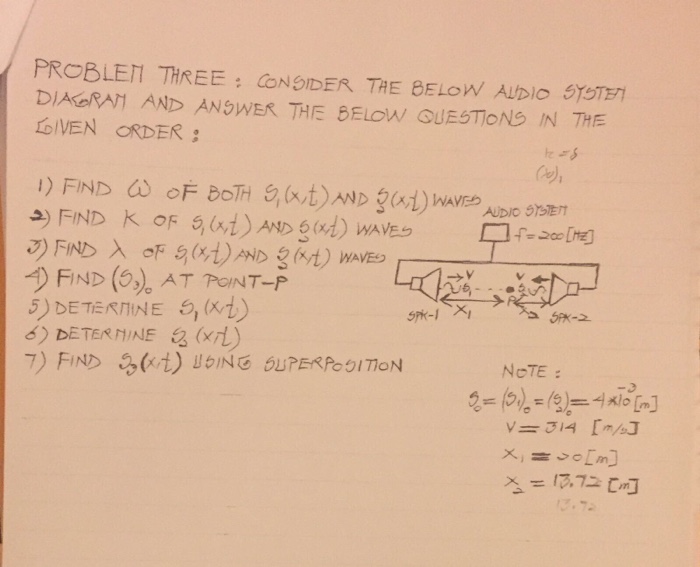 PROBLEM THREE : CONSIDER THE BELOW AUDIO SYSTEM
DIAGRAM AND ANSWER THE BELOW QUESTIONS IN THE
GIVEN ORDER :
1) FIND ω OF BOTH S₁(x,t) AND S₂(x,t) WAVES
2) FIND K OF S₁(x,t) AND S₂(x,t) WAVES
3) FIND λ OF S₁(x,t) AND S₂(x,t) WAVES
4) FIND (S₃)₀ AT POINT-P
5) DETERMINE S₁(x,t)
6) DETERMINE S₂(x,t)
7) FIND S₃(x,t) USING SUPERPOSITION
AUDIO SYSTEM
f=200[HZ]
→V V ←
S₁ S₂
P
SPK-1 X₁ X₂ SPK-2
NOTE :
S₀=(S₁)₀=(S₂)₀=4×10⁻³[m]
V=314 [m/s]
X₁=20[m]
X₂=13.72[m]
13.72